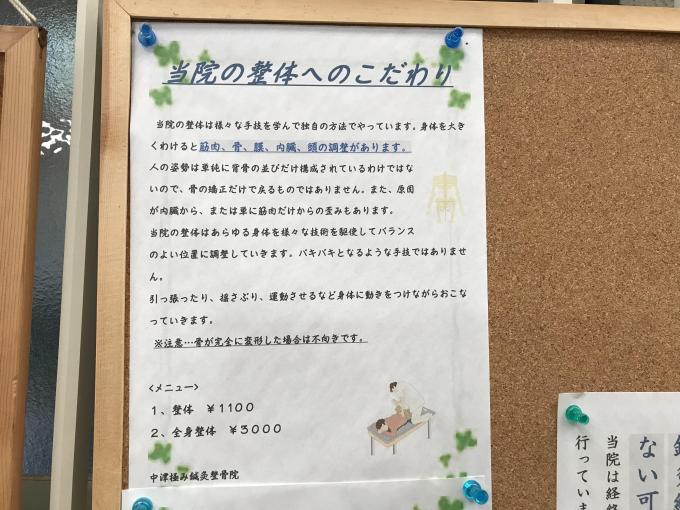 当院の整体へのこだわり
当院の整体は様々な手技を学んで独自の方法でやっています。身体を大き
くわけると筋肉、骨、膜、内臓、頭の調整があります。
人の姿勢は単純に背骨の並びだけ構成されているわけでは
ないので、骨の矯正だけで戻るものではありません。また、原因
が内臓から、または単に筋肉だけからの歪みもあります。
当院の整体はあらゆる身体を様々な技術を駆使してバランス
のよい位置に調整していきます。バキバキとなるような手技ではありませ
ん。
引っ張ったり、揺さぶり、運動させるなど身体に動きをつけながらおこな
っていきます。
※注意…骨が完全に変形した場合は不向きです。
<メニュー>
1、整体 ￥1100
2、全身整体 ￥3000
中津極み鍼灸整骨院
ない可
当院は経絡
行っていま